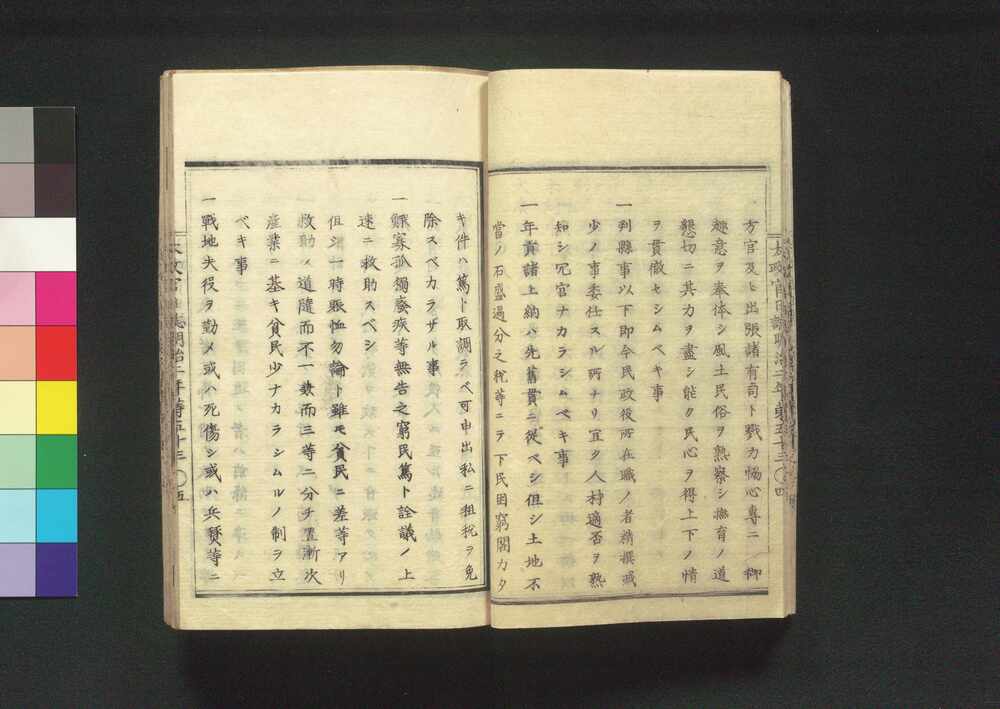 方官及ヒ出張諸有司ト戮力協心專ニ御
趣意ヲ奉体シ風土民俗ヲ熟察シ撫育ノ道
懇切ニ其力ヲ盡シ能ク民心ヲ得上下ノ情
ヲ貫徹セシムベキ事
一判縣事以下即今民政役所在職ノ者精撰减
少ノ事委任スル所ナリ宜ク人材適否ヲ熟
知シ冗官ナカラシムベキ事
一年貢諸上納ハ先舊貫ニ從ベシ但シ土地不
當ノ石盛過分之税等ニテ下民困窮閣カタ
キ件ハ篤ト取調ラベ可申出私ニ租税ヲ免
除スベカラザル事
一鰥寡孤獨癈疾等無告之窮民篤ト詮議ノ上
速ニ救助スベシ
但水一時賑恤勿論ト雖モ貧民ニ差等アリ
救助ノ道隨而不一歟而三等ニ分チ置漸次
産業ニ基キ貧民少ナカラシムルノ制ヲ立
ベキ事
一戰地夫役ヲ勤メ或ハ死傷シ或ハ兵燹等ニ
太政官日誌明治二年第五十三〇四
太政官日誌明治二年第五十三〇五